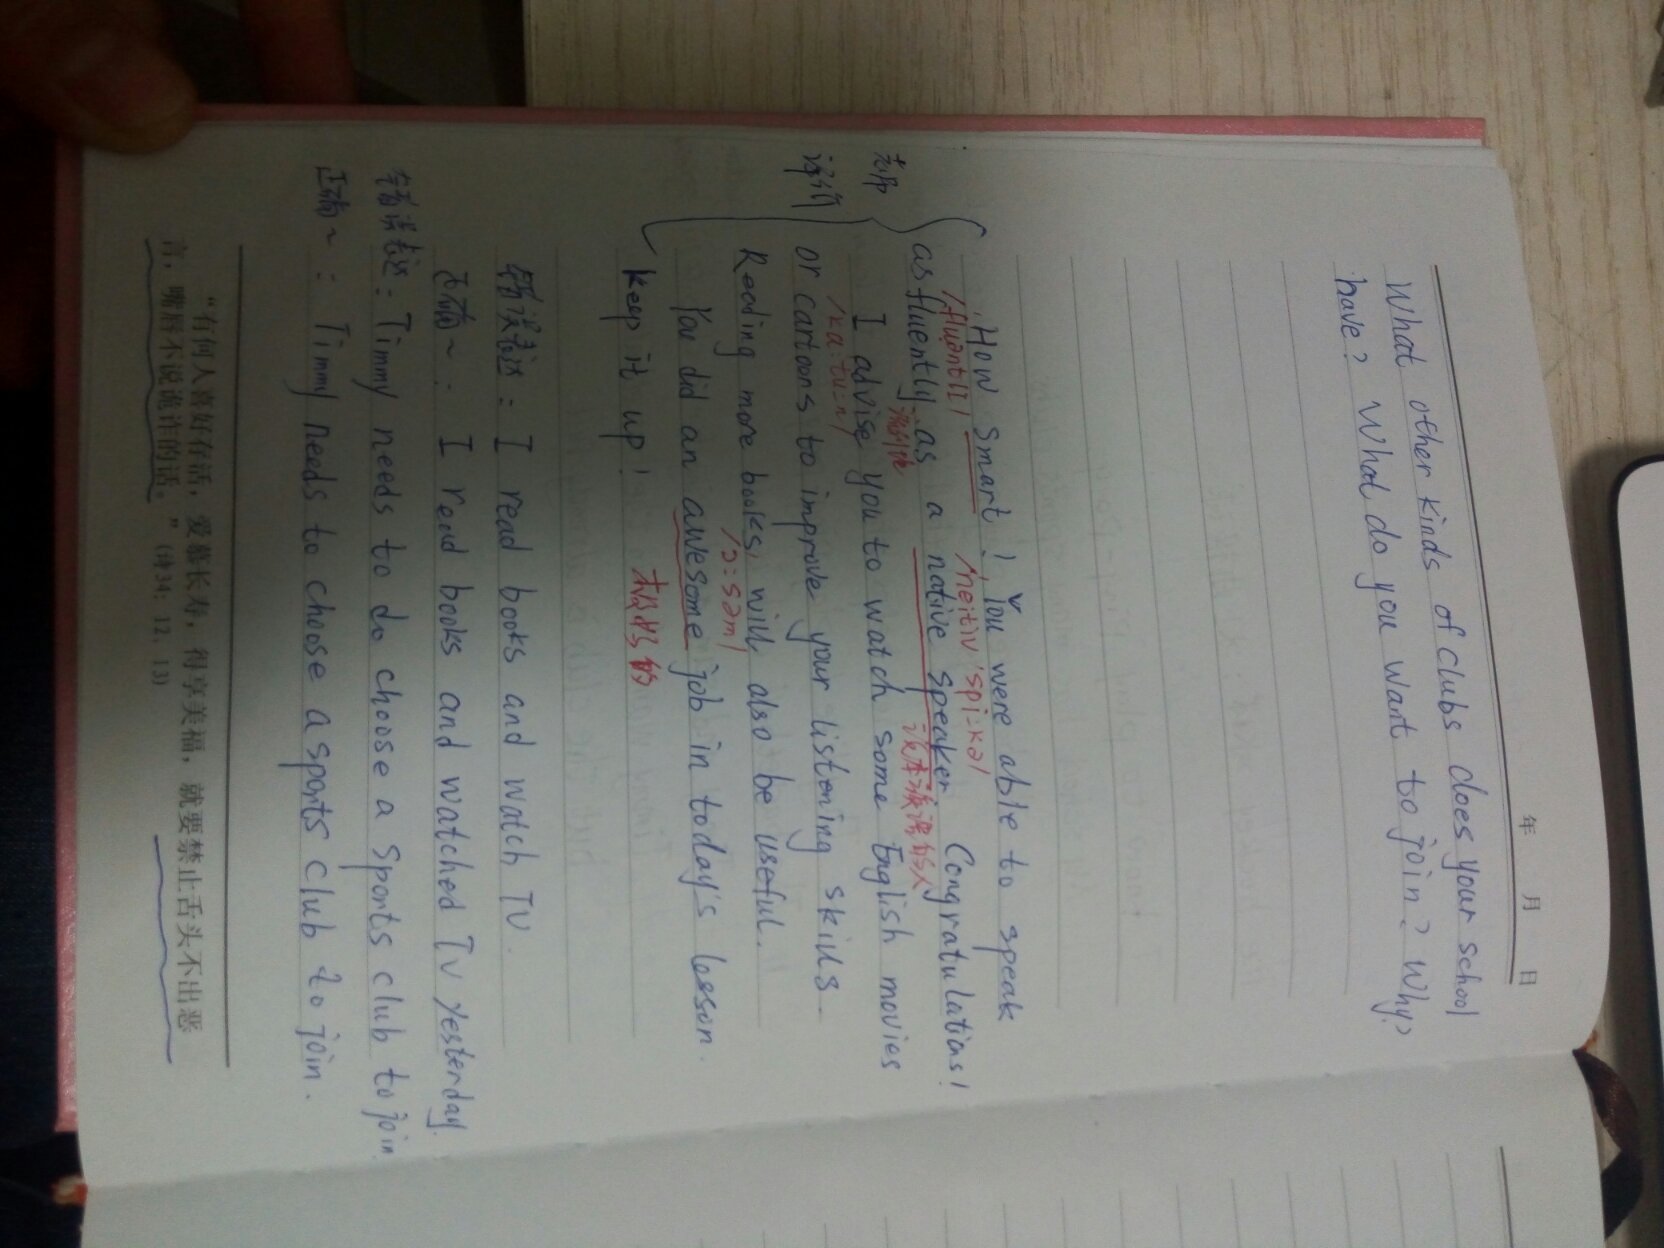 年 月 日
What other kinds of clubs does your school
have? What do you want to join? Why?
How smart! You were able to speak
/fluəntlɪ/ /neitiv 'spi:kə/
as fluently as a native speaker. Congratulations!
流利地 说本族语的人
老师
I advise you to watch some English movies
/ka:tu:n/
评价
or cartoons to improve your listening skills.
Reading more books will also be useful.
/ɔ:səm/
You did an awesome job in today's lesson.
极好的
keep it up!
错误表述: I read books and watch TV.
正确~: I read books and watched TV yesterday.
错误表述: Timmy needs to do choose a sports club to join.
正确~: Timmy needs to choose a sports club to join.
“有何人喜好存活,爱慕长寿,得享美福,就要禁止舌头不出恶
言,嘴唇不说诡诈的话。”(诗34:12,13)